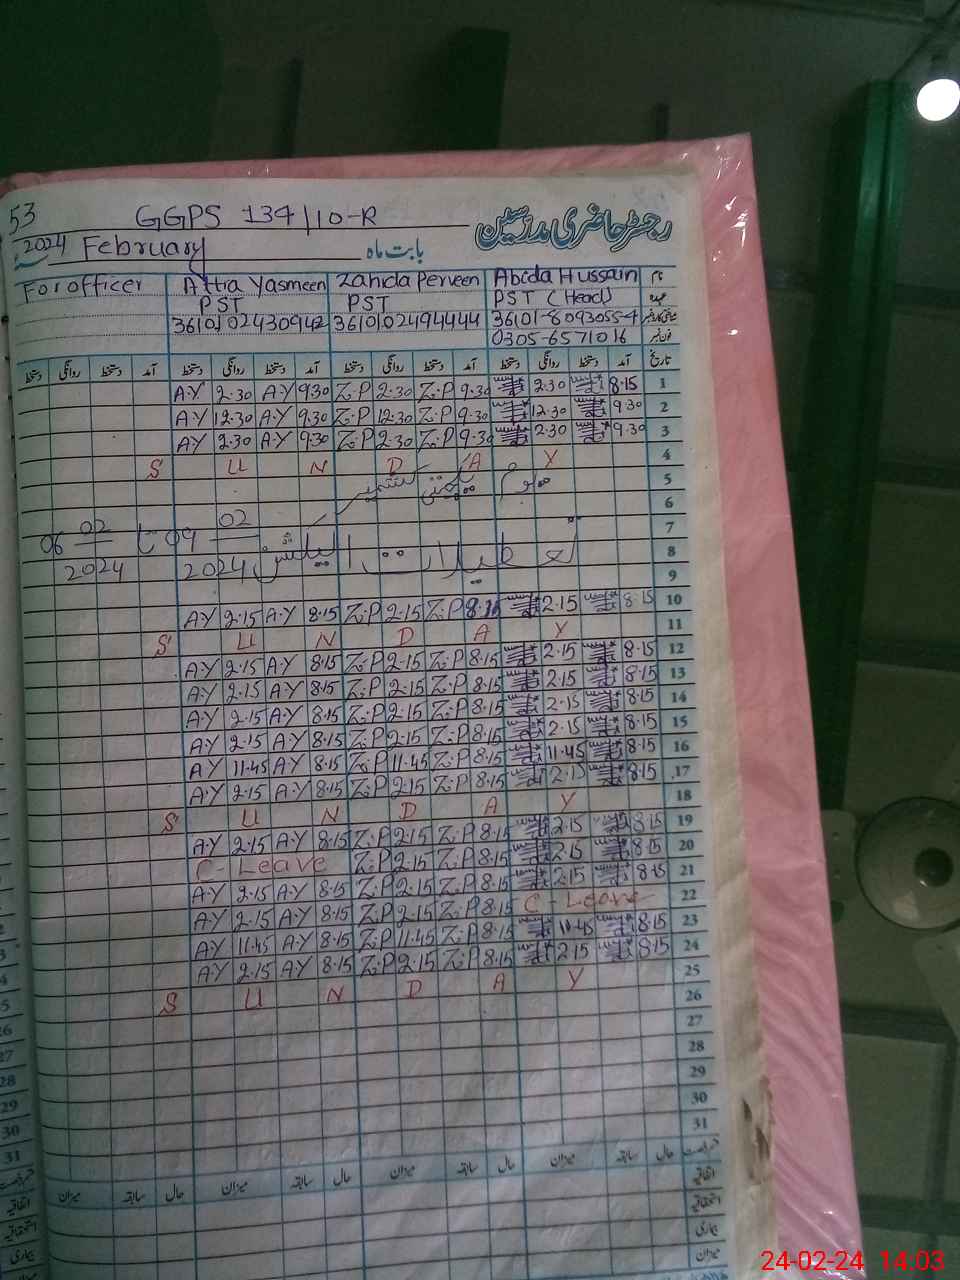 53
GGPS 134/10-R
رجسٹر حاضری مدرسین
2024 February بابت ماہ
For officer Attia Yasmeen Zahida Perveen Abida Hussain نام
PST PST PST (Head) عہدہ
3610102430942 3610102494444 36101-8093055-4
0305-6571016 فون نمبر
دستخط روانگی دستخط آمد دستخط روانگی دستخط آمد دستخط روانگی دستخط آمد دستخط روانگی دستخط آمد تاریخ
A.Y 2.30 A.Y 9.30 Z.P 2.30 Z.P 9.30 2.30 8.15 1
A.Y 12.30 A.Y 9.30 Z.P 12.30 Z.P 9.30 12.30 9.30 2
A.Y 2.30 A.Y 9.30 Z.P 2.30 Z.P 9.30 2.30 9.30 3
S U N D A Y 4
5
6
06 02 2024 تا 09 02 2024 تعطیلات الیکشن 7
8
9
A.Y 2.15 A.Y 8.15 Z.P 2.15 Z.P 8.15 2.15 8.15 10
S U N D A Y 11
A.Y 2.15 A.Y 8.15 Z.P 2.15 Z.P 8.15 2.15 8.15 12
A.Y 2.15 A.Y 8.15 Z.P 2.15 Z.P 8.15 2.15 8.15 13
A.Y 2.15 A.Y 8.15 Z.P 2.15 Z.P 8.15 2.15 8.15 14
A.Y 2.15 A.Y 8.15 Z.P 2.15 Z.P 8.15 2.15 8.15 15
A.Y 11.45 A.Y 8.15 Z.P 11.45 Z.P 8.15 11.45 8.15 16
A.Y 2.15 A.Y 8.15 Z.P 2.15 Z.P 8.15 2.15 8.15 17
S U N D A Y 18
A.Y 2.15 A.Y 8.15 Z.P 2.15 Z.P 8.15 2.15 8.15 19
C-Leave Z.P 2.15 Z.P 8.15 2.15 8.15 20
A.Y 2.15 A.Y 8.15 Z.P 2.15 Z.P 8.15 2.15 8.15 21
A.Y 2.15 A.Y 8.15 Z.P 2.15 Z.P 8.15 C-Leave 22
A.Y 11.45 A.Y 8.15 Z.P 11.45 Z.P 8.15 11.45 8.15 23
A.Y 2.15 A.Y 8.15 Z.P 2.15 Z.P 8.15 2.15 8.15 24
S U N D A Y 25
26
27
28
29
30
31
میزان سابقہ حال میزان سابقہ حال میزان سابقہ حال میزان سابقہ حال
اتفاقیہ
استحقاقیہ
بیماری
میزان
24-02-24 14:03